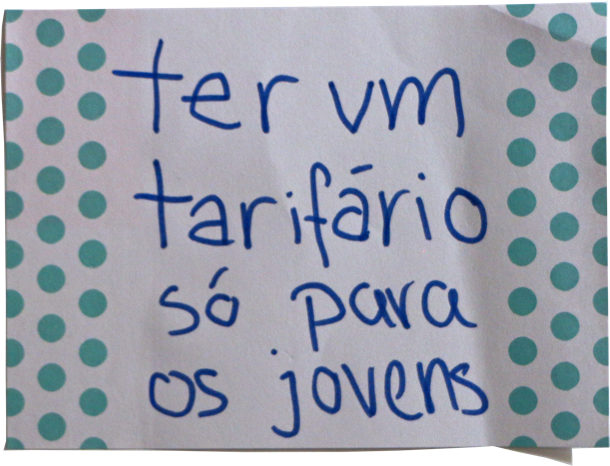 ter um
tarifário
só para
os jovens